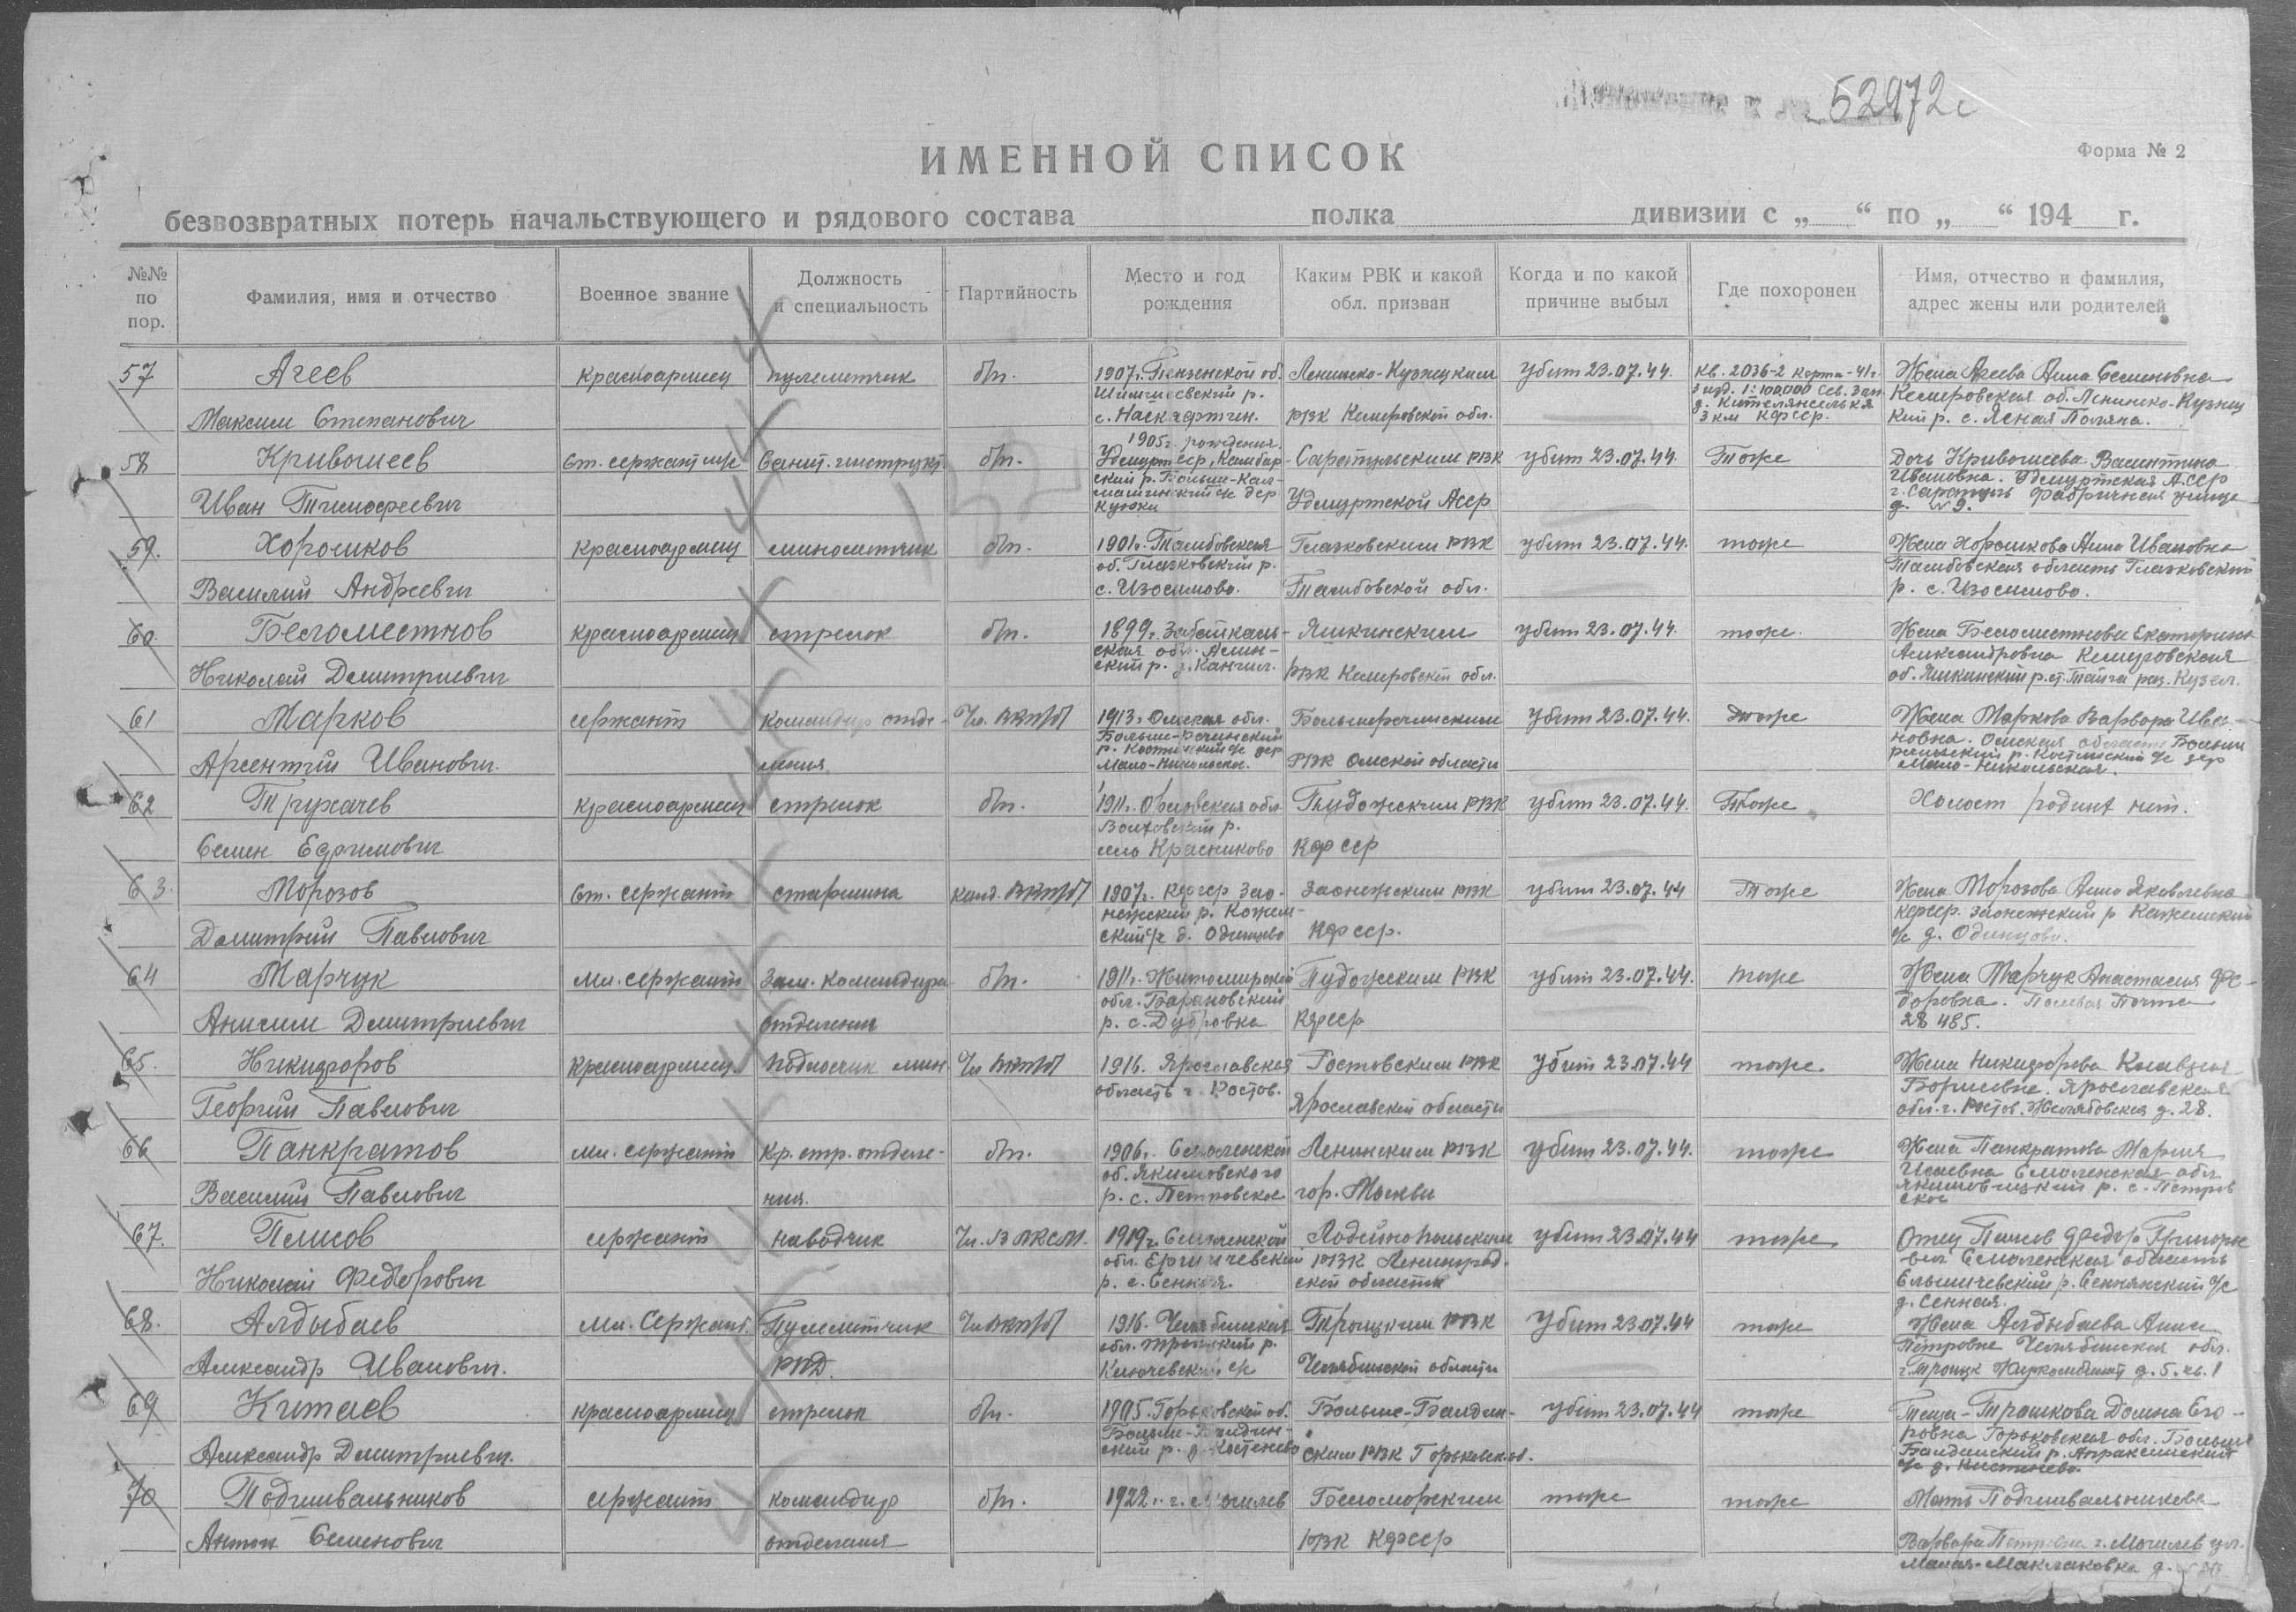 52972с
Форма № 2
ИМЕННОЙ СПИСОК
безвозвратных потерь начальствующего и рядового состава полка дивизии с „ “ по „ “ 194 г.
№№ по пор. Фамилия, имя и отчество Военное звание Должность и специальность Партийность Место и год рождения Каким РВК и какой обл. призван Когда и по какой причине выбыл Где похоронен Имя, отчество и фамилия, адрес жены или родителей
57 Агеев красноармеец пулеметчик б/п. 1907г. Пензенской об. Ленинско-Кузнецким убит 23.07.44. кв. 2036-2 карта-41г. Жена Агеева Анна Семеновна
изд. 1:100000 Сев. Зап.
Кемеровская об. Ленинско-Кузнец
Максим Степанович с. РВК Кемеровской обл. 3 км КФССР. кий р. с. Ясная Поляна.
1905г. рождения.
58 Кривошеев Ст. сержант м/с Санит. инструкт. б/п. Удмурт ССР, Камбар- Сарапульским РВК убит 23.07.44. Тоже Дочь Кривошеева Валентина
ский р. Больше-Кал- Ивановна. Удмуртская АССР
Иван Тимофеевич машинский с/с дер Удмуртской АССР г. Сарапуль Фабричная улица
д. № 9.
59. Хорошков красноармеец минометчик б/п. 1901г. Тамбовская Глазковским РВК убит 23.07.44. тоже Жена Хорошкова Анна Ивановна
об. Глазковский р. Тамбовская область Глазковский
Василий Андреевич с. Изосимово. Тамбовской обл. р. с. Изосимово.
60. Беломестнов красноармеец стрелок б/п. 1899г. Забайкаль- Яшкинским убит 23.07.44. тоже. Жена Беломестнова Екатерина
ская обл. Александровна Кемеровская
Николай Дмитриевич ский р. РВК Кемеровской обл. об. Яшкинский р. ст. Тайга раз. Кузел.
61 Марков сержант командир отде- Чл. ВКП/б/ 1913г. Омская обл. Большереченским убит 23.07.44. тоже Жена Маркова Варвара Ива-
Больше-Реченский новна. Омская область Больше
р. с/с дер реченский р. с/с дер
Арсентий Иванович. ления Мало-Никольское. РВК Омской области Мало-Никольская.
62 Трухачев красноармеец стрелок б/п. 1911г. Орловская обл. Пудожским РВК убит 23.07.44. Тоже Холост родных нет.
Воловский р.
Семен Ефимович село Красниково КФССР
63. Морозов Ст. сержант старшина канд. ВКП/б/ 1907г. КФССР Зао- Заонежским РВК убит 23.07.44 Тоже Жена Морозова Анна Яковлевна
нежский р. КФССР. Заонежский р
Дмитрий Павлович ский с/с д. Одинцово КФССР. с/с д. Одинцово.
64 Марчук мл. сержант Зам. командира б/п. 1911г. Житомирской Пудожским РВК убит 23.07.44. тоже Жена Марчук Анастасия Фе-
обл. Барановский доровна. Полевая Почта
Анисим Дмитриевич отделения р. с. Дубровка КФССР 28485.
65. Никифоров красноармеец. подносчик мин Чл ВКП/б/ 1916. Ярославская Ростовским РВК убит 23.07.44 тоже. Жена Никифорова Клавдия
область г. Ростов. Борисовна. Ярославская
Георгий Павлович Ярославской области обл. г. Ростов. Желябовская д. 28.
66 Панкратов мл. сержант Кр. стр. отделе- б/п. 1906г. Смоленской Ленинским РВК убит 23.07.44. тоже Жена Панкратова Мария
об. Якимовского Исаевна Смоленская обл.
Василий Павлович ния. р. с. Петровское гор. Москвы р. с. Петров
ское
67. сержант наводчик Чл. ВЛКСМ. 1919г. Смоленской Лодейнопольским убит 23.07.44 тоже Отец Федор Григорье
обл. р-н РВК Ленинград- вич Смоленская область
Николай Федорович р. с. Сенная. ской области р. Сеннянский с/с
д. Сенная.
68. Алдыбаев мл. Сержант. Пулеметчик Чл ВКП/б/ 1916. Челябинская Троицким РВК Убит 23.07.44 тоже Жена Алдыбаева Анна
обл. Троицкий р. Петровна Челябинская обл.
Александр Иванович. РПД. Ключевский с/с Челябинской области г. Троицк Жиркомбинат д. 5. кв. 1
69 Китаев красноармеец стрелок б/п. 1905. Горьковской об. Больше-Болдин- убит 23.07.44 тоже Теща-Трошкова Домна Его-
Больше-Болдин- ровна Горьковская обл. Больше
Александр Дмитриевич. ский р. д. ским РВК Горьковск. об. Болдинский р. Апраксинский
с/с д.
70 Подшивальников сержант командир б/п. 1922г. г. Могилев Беломорским тоже тоже Мать Подшивальникова
Антон Семенович отделения РВК КФССР Варвара Петровна г. Могилев ул.
Малая-Маклаковка д.